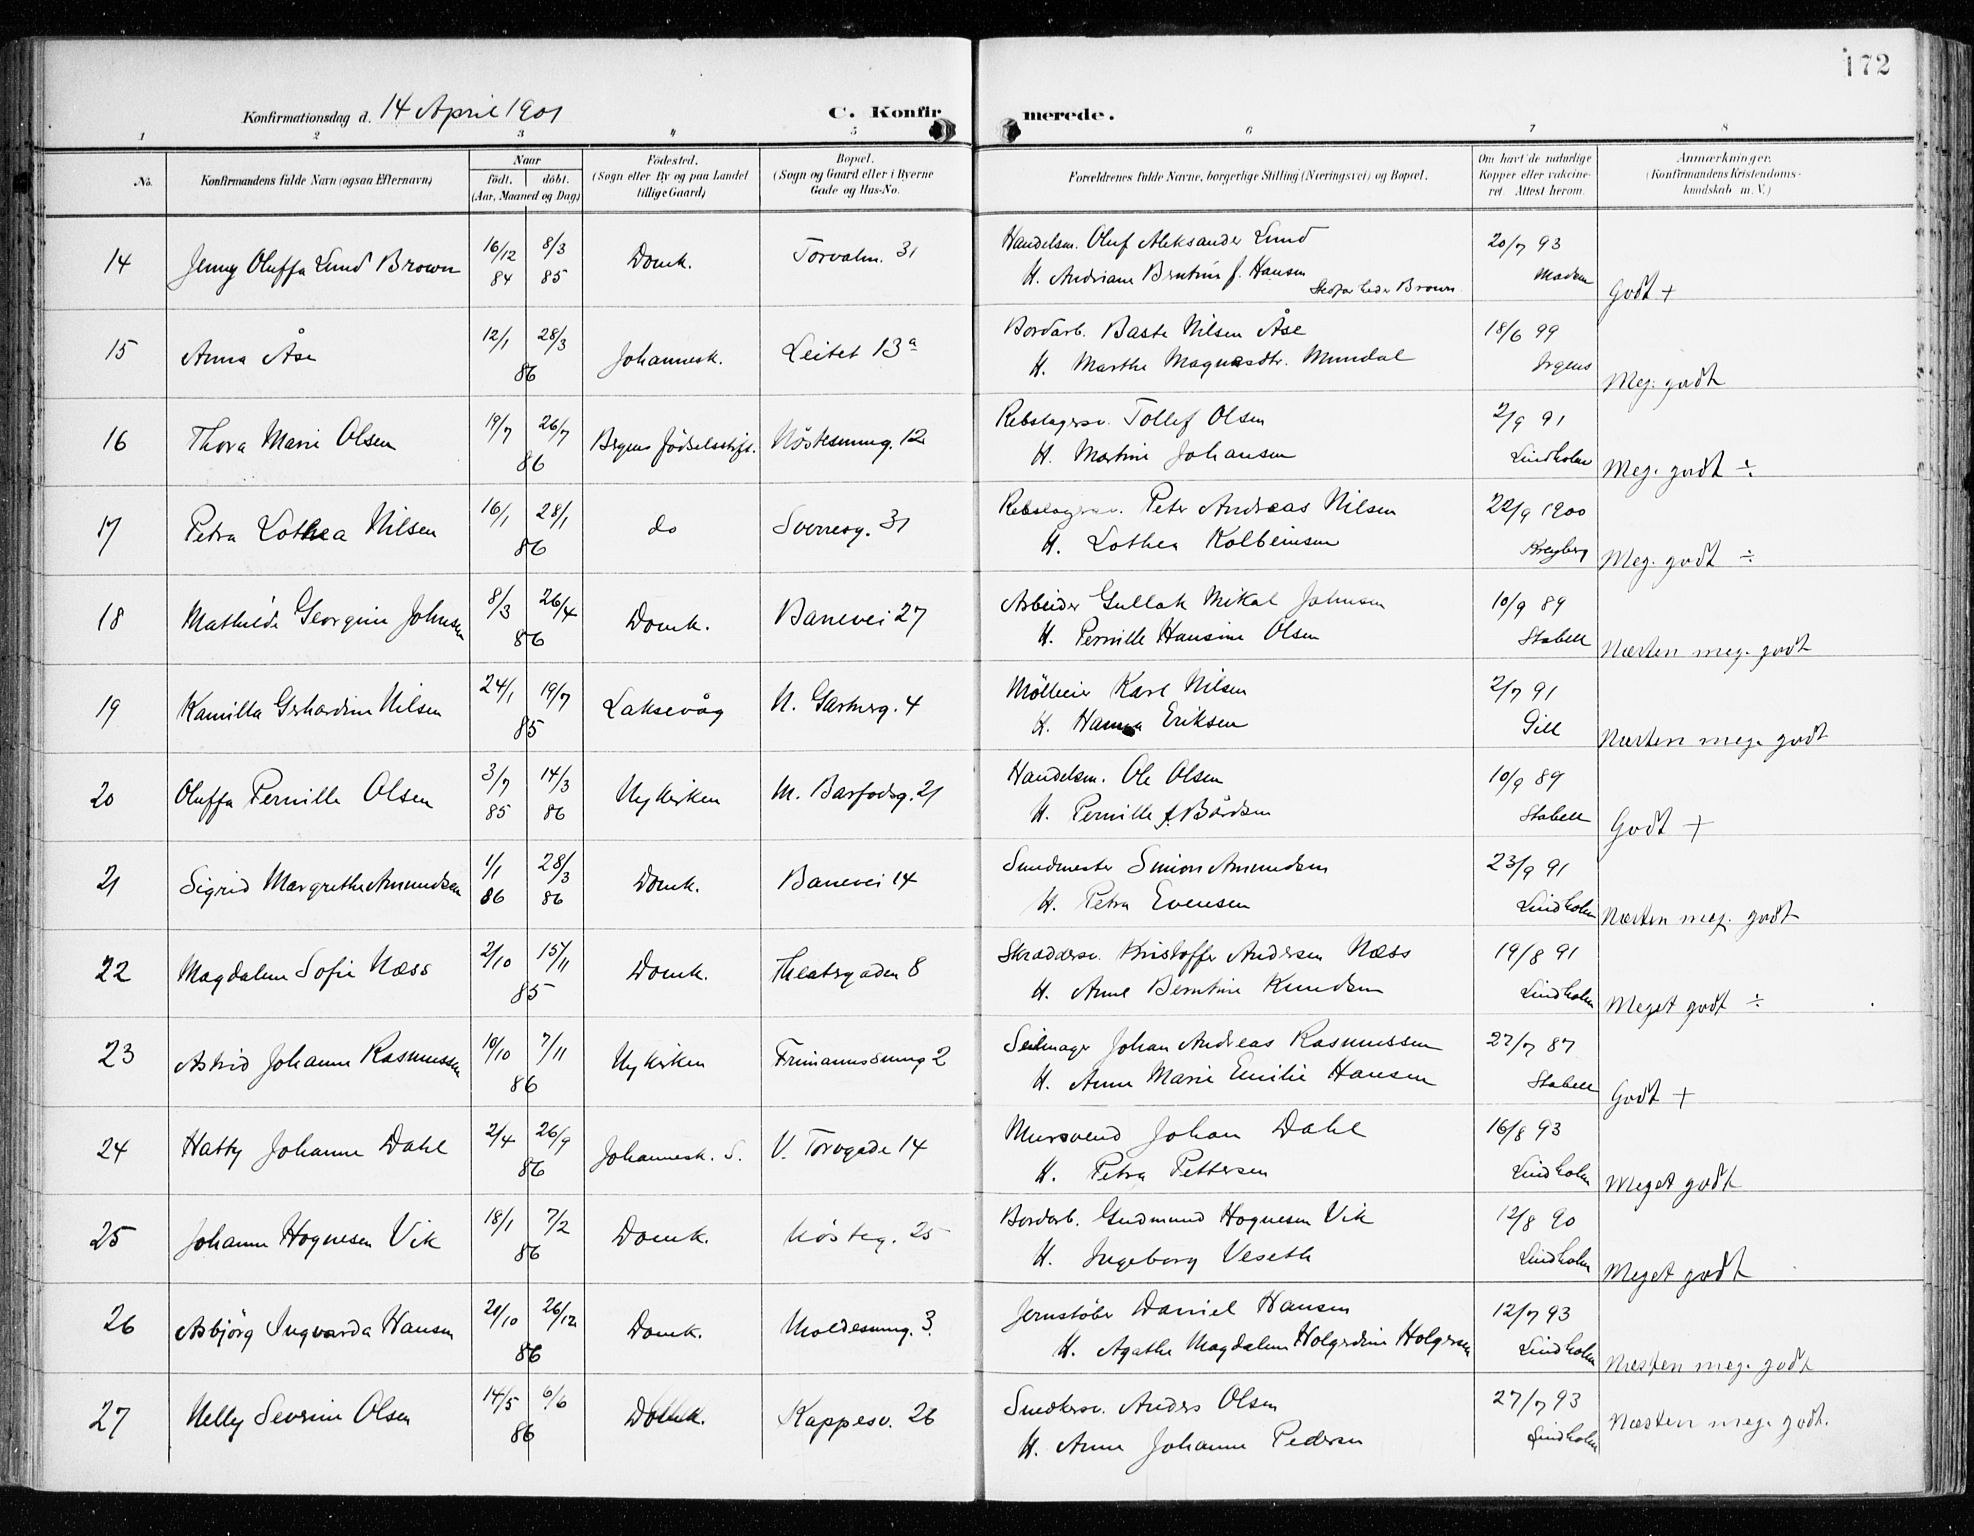 172
Konfirmationsdag d. 14 April 1901
C. Konfirmerede.
1 2 3 4 5 6 7 8
No. Konfirmandens fulde Navn (ogsaa Efternavn) Naar födt. döbt. (Aar, Maaned og Dag) Födested. (Sogn eller By og paa Landet tillige Gaard) Bopæl. (Sogn og Gaard eller i Byerne Gade og Hus-No. Forældrenes fulde Navne, borgerlige Stilling (Næringsvei) og Bopæl. Om havt de naturlige Kopper eller vakcineret. Attest herom. Anmærkninger. (Konfirmandens Kristendomskundskab m. V.)
14 Jenny Oluffa Lund Brown 16/12 84 8/3 85 Domk. Torvalm. 31 Handelsm. Oluf Aleksander Lund 20/7 93
H. Andriane Berntine f. Hansen Brown Godt +
15 Anna Åse 12/1 28/3 86 Johannesk. Leitet 13a Bordarb. Baste Nilsen Åse 18/6 99
H. Marthe Magnesdtr. Mundal Irgens Meg. godt
16 Thora Marie Olsen 19/7 26/7 86 Bergens Födselsstift. Nöstesmug. 12 Rebslagersv. Tollef Olsen 2/9 91
H. Martine Johansen Lindholm Meg. godt ÷
17 Petra Lothea Nilsen 16/1 28/1 86 do Sverresg. 31 Rebslagersv. Peter Andreas Nilsen 22/9 1900
H. Lothea Kolbeinsen Kreyberg Meg. godt ÷
18 Mathilde Georgine Johnsen 8/3 26/4 86 Domk. Banevei 27 Arbeider Gullak Mikal Johnsen 10/9 89
H. Pernille Hansine Olsen Stabell Næsten meg. godt
19 Kamilla Gerhardine Nilsen 24/1 19/7 85 Laksevåg N. Garverg. 4 Karl Nilsen 2/7 91
H. Hanna Eriksen Gill Næsten meg. godt
20 Oluffa Pernille Olsen 3/7 85 14/3 86 Nykirken M. Barfodsg. 21 Handelsm. Ole Olsen 10/9 89
H. Pernille f. Bårdsen Stabell Godt +
21 Sigrid Margrethe Amundsen 1/1 86 28/3 86 Domk. Banevei 14 Simon Amundsen 23/9 91
H. Petra Evensen Lindholm Næsten meg. godt
22 Magdalene Sofie Næss 2/10 15/11 85 Domk. Theatergaden 8 Skræddersv. Kristoffer Andersen Næss 19/8 91
H. Anne Berntine Knudsen Lindholm Meget godt ÷
23 Astrid Johanne Rasmussen 10/10 7/11 86 Nykirken Frimannssmug 2 Seilmager Johan Andreas Rasmussen 27/7 87
H. Anne Marie Emilie Hansen Stabell Godt +
24 Hatty Johanne Dahl 2/4 26/9 86 Johannesk. S. V. Torvgade 14 Mursvend Johan Dahl 16/8 93
H. Petra Pettersen Lindholm Meget godt
25 Johanne Hognesen Vik 18/1 7/2 86 Domk. Nösteg. 25 Bordarb. Gudmund Hognesen Vik 12/8 90
H. Ingeborg Veseth Lindholm Meget godt
26 Asbjörg Ingvarda Hansen 20/10 26/12 86 Domk. Moldesmug. 3. Jernstöber Daniel Hansen 12/7 93
H. Agathe Magdalene Holgerdine Holgersen Lindholm Næsten meg. godt
27 Nelly Severine Olsen 14/5 6/6 86 Domk. Kappesv. 26 Snedkersv. Anders Olsen 27/7 93
H. Anne Johanne Pedersen Lindholm Næsten meg. godt.